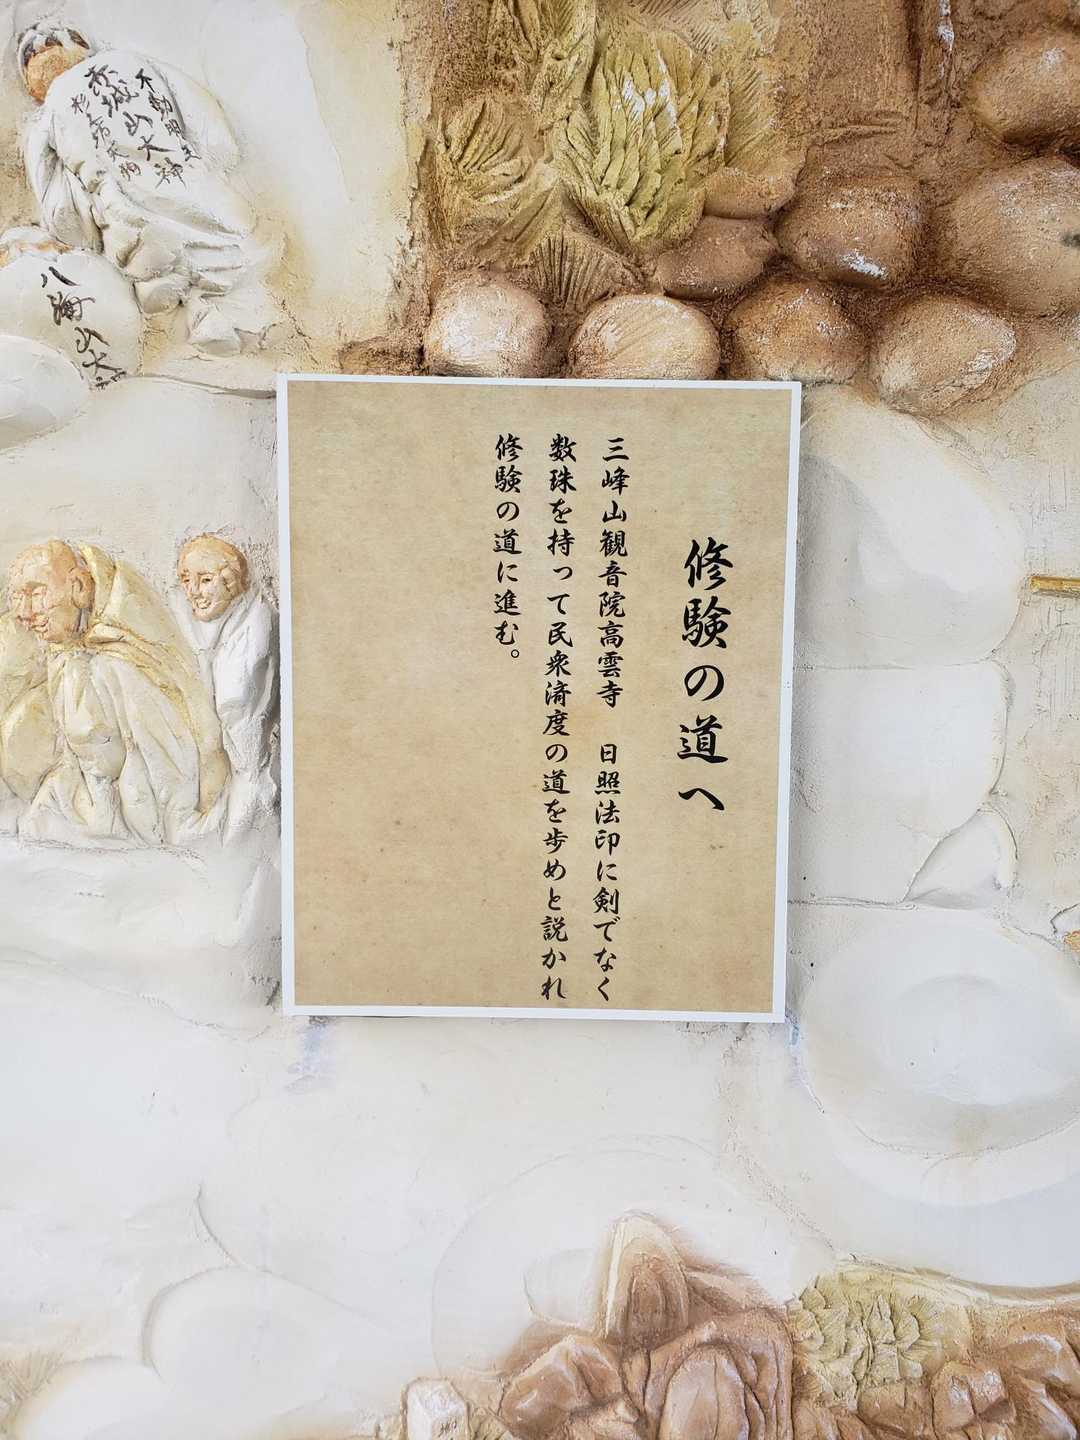 修験の道へ
三峰山観音院高雲寺　日照法印に剣でなく
数珠を持って民衆済度の道を歩めと説かれ
修験の道に進む。
不動明王
赤城山大神
八海山大